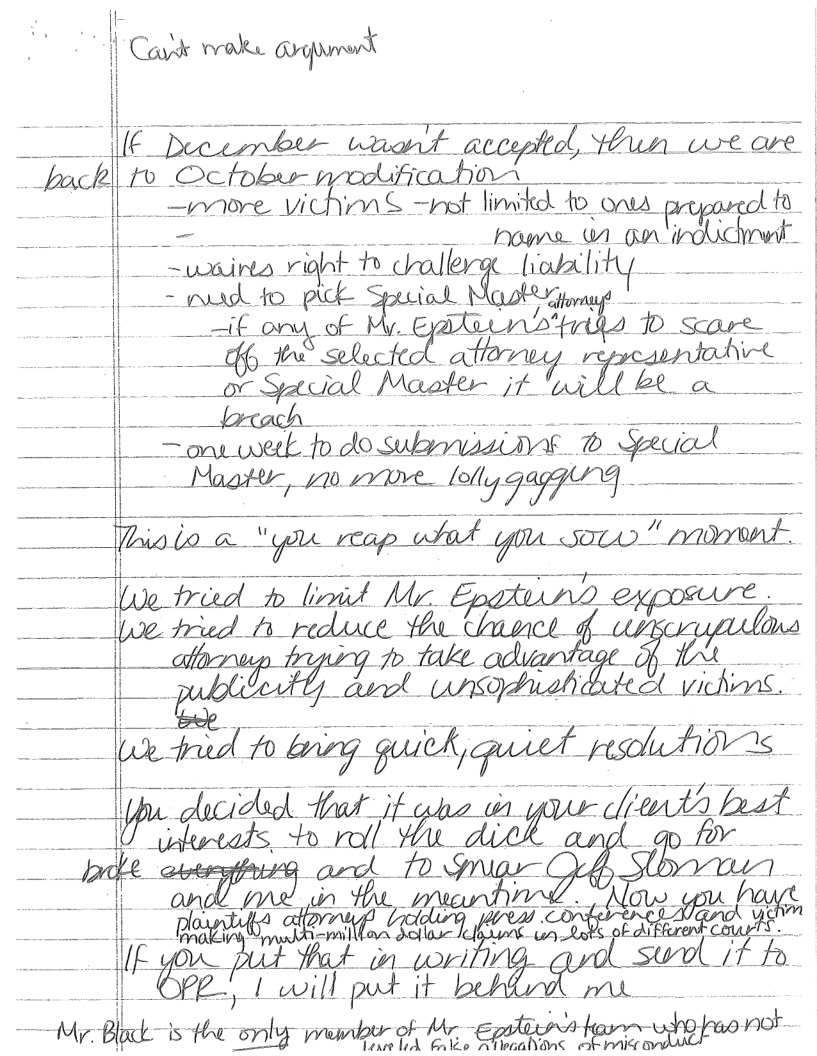 Can't make argument
If December wasn't accepted, then we are
back to October modification
- more victims - not limited to ones prepared to
- name in an indictment
- waives right to challenge liability
- need to pick Special Master
attorneys
- if any of Mr. Epstein's ^ tries to scare
off the selected attorney representative
or Special Master it will be a
breach
- one week to do submissions to Special
Master, no more lollygagging
This is a "you reap what you sow" moment.
We tried to limit Mr. Epstein's exposure.
We tried to reduce the chance of unscrupulous
attorneys trying to take advantage of the
publicity and unsophisticated victims.
We tried to bring quick, quiet resolutions
You decided that it was in your client's best
interests to roll the dick and go for
broke everything and to smear Jeff Sloman
and me in the meantime. Now you have
plaintiffs attorneys holding press conferences and victim
making multi-million dollar claims in lots of different courts.
If you put that in writing and send it to
OPR, I will put it behind me
Mr. Black is the only member of Mr. Epstein's team who has not
leveled false allegations of misconduct